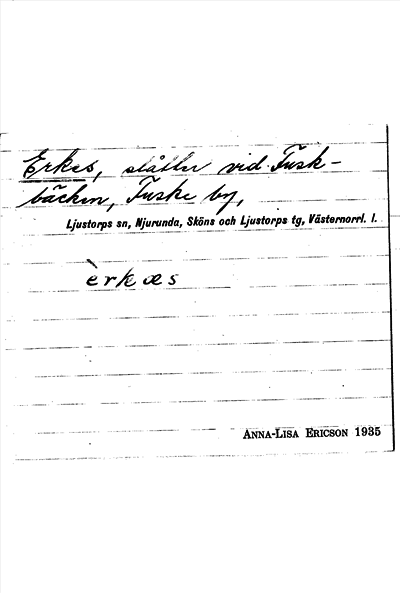 Erkes, slåtter vid Fusk-
bäcken, Fuske by,
Ljustorps sn, Njurunda, Sköns och Ljustorps tg, Västernorrl. l.
èrkæs
ANNA-LISA ERICSON 1935